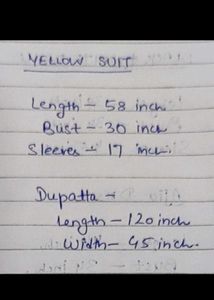 YELLOW SUIT
Length - 58 inch
Bust - 30 inch
Sleeves - 17 inch.
Dupatta -
Length - 120 inch
Width - 45 inch.